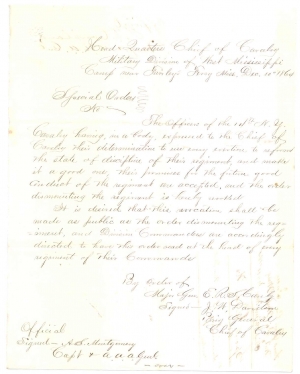 Head Quarters Chief of Cavalry
Military Division of West Mississippi
Camp near Ferry Miss. Dec. 10th 1864
Special Orders
No
The officers of the N. Y.
Cavalry having, in a body, expressed to the Chief of
Cavalry their determination to use every exertion to reform
the state of discipline of their regiment, and make
it a good one, their promises for the future good
conduct of the regiment are accepted, and the order
dismounting the regiment is hereby
It is desired that this shall be
made as public as the order dismounting the reg-
iment, and Division Commanders are accordingly
directed to have the order read at the head of every
regiment of their Commands
By order of
Major Gen E. R. S. Canby
Signed J. W. Davidson
Brig General
Chief of Cavalry
Official
Signed A. S. Montgomery
Capt & a a a Genl